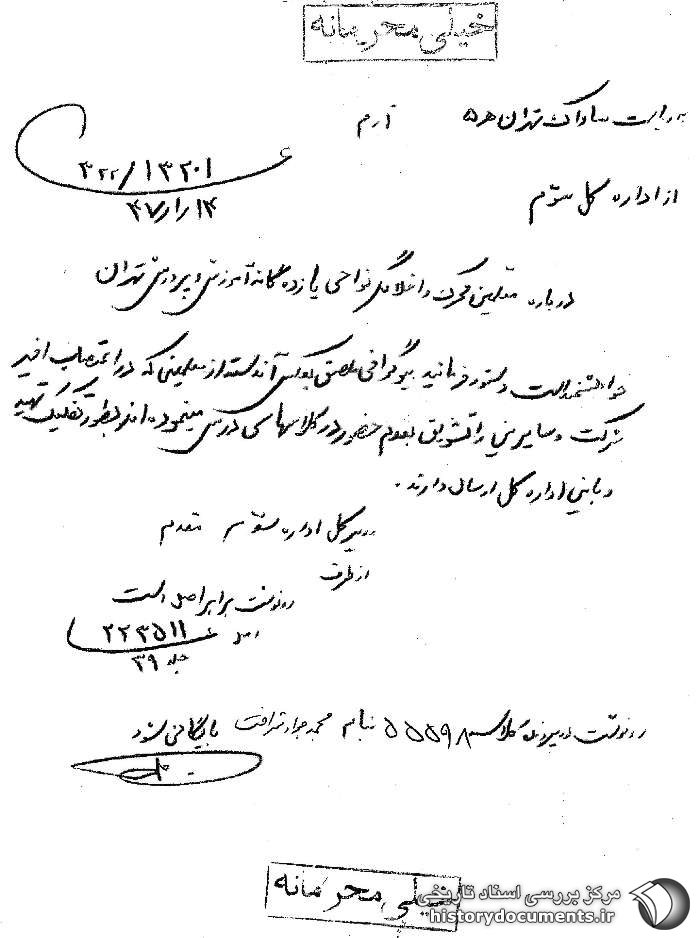 خیلی محرمانه
به ریاست ساواک تهران ه‍ ۵ آرم
۳۲۲/۱۳۲۰۱
۴۷/۱/۱۴
از اداره کل سوم
درباره معلمین محرک و اخلالگر نواحی یازده گانه آموزش و پرورش تهران
خواهشمند است دستور فرمائید بیوگرافی ملصق بعکس آندسته از معلمینی که در اعتصاب اخیر
شرکت و سایرین را تشویق بعدم حضور در کلاسهای درس مینموده اند بطور تفکیک تهیه
و باین اداره کل ارسال دارند.
مدیر کل اداره سوم مقدم
از طرف
رونوشت برابر اصل است
اصل ۲۲۳۵۱۱
جلد ۳۹
رونوشت در پرونده کلاسه ۵۵۵۹۸ بنام محمدجواد شرافت بایگانی شود
خیلی محرمانه
مرکز بررسی اسناد تاریخی
historydocuments.ir